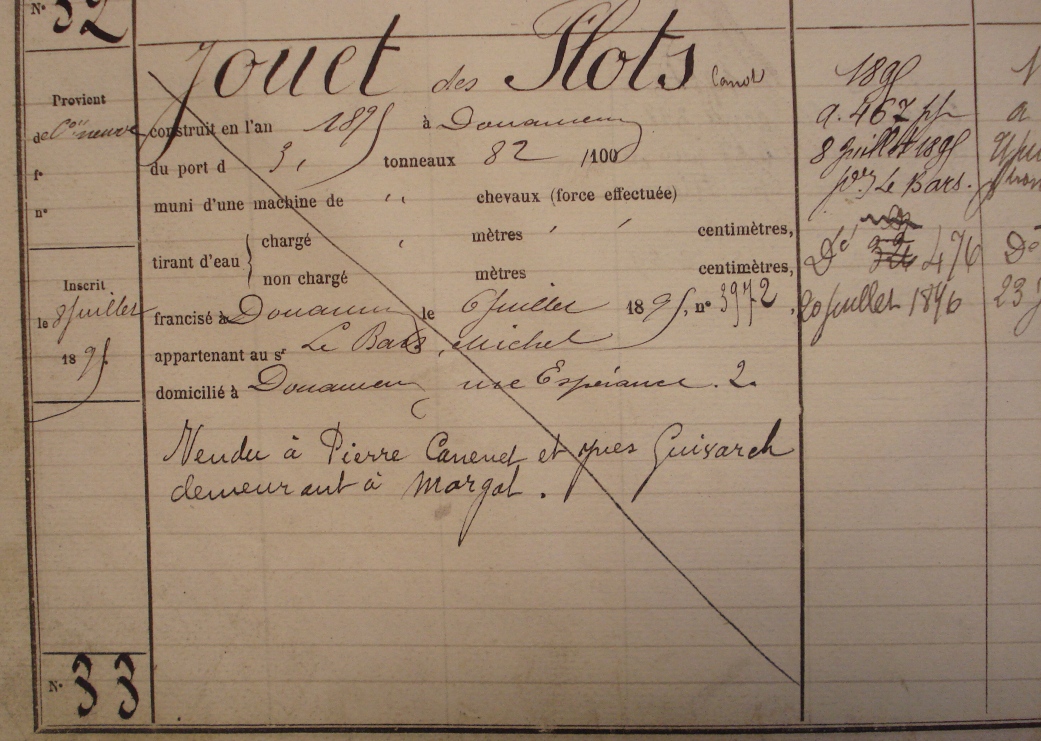 N° 32
Jouet des Flots Canot
Provient
de Con neuve
f°
n°
Inscrit
le 8 Juillet
1895
construit en l'an 1895 à Douarnenez
du port d 3, tonneaux 82 /100
muni d'une machine de " chevaux (force effectuée)
tirant d'eau { chargé mètres centimètres,
non chargé mètres centimètres,
francisé à Douarnenez le 6 Juillet 1895, n° 3972.
appartenant au sr Le Bars, Michel
domicilié à Douarnenez rue Espérance. 2.
Vendu à Pierre Canevet et yves Guivarch
demeurant à Morgat.
N° 33
1895
a. 467 pp
8 Juillet 1895
Le Bars.
Do 476
20 Juillet 1896
a
Do
23